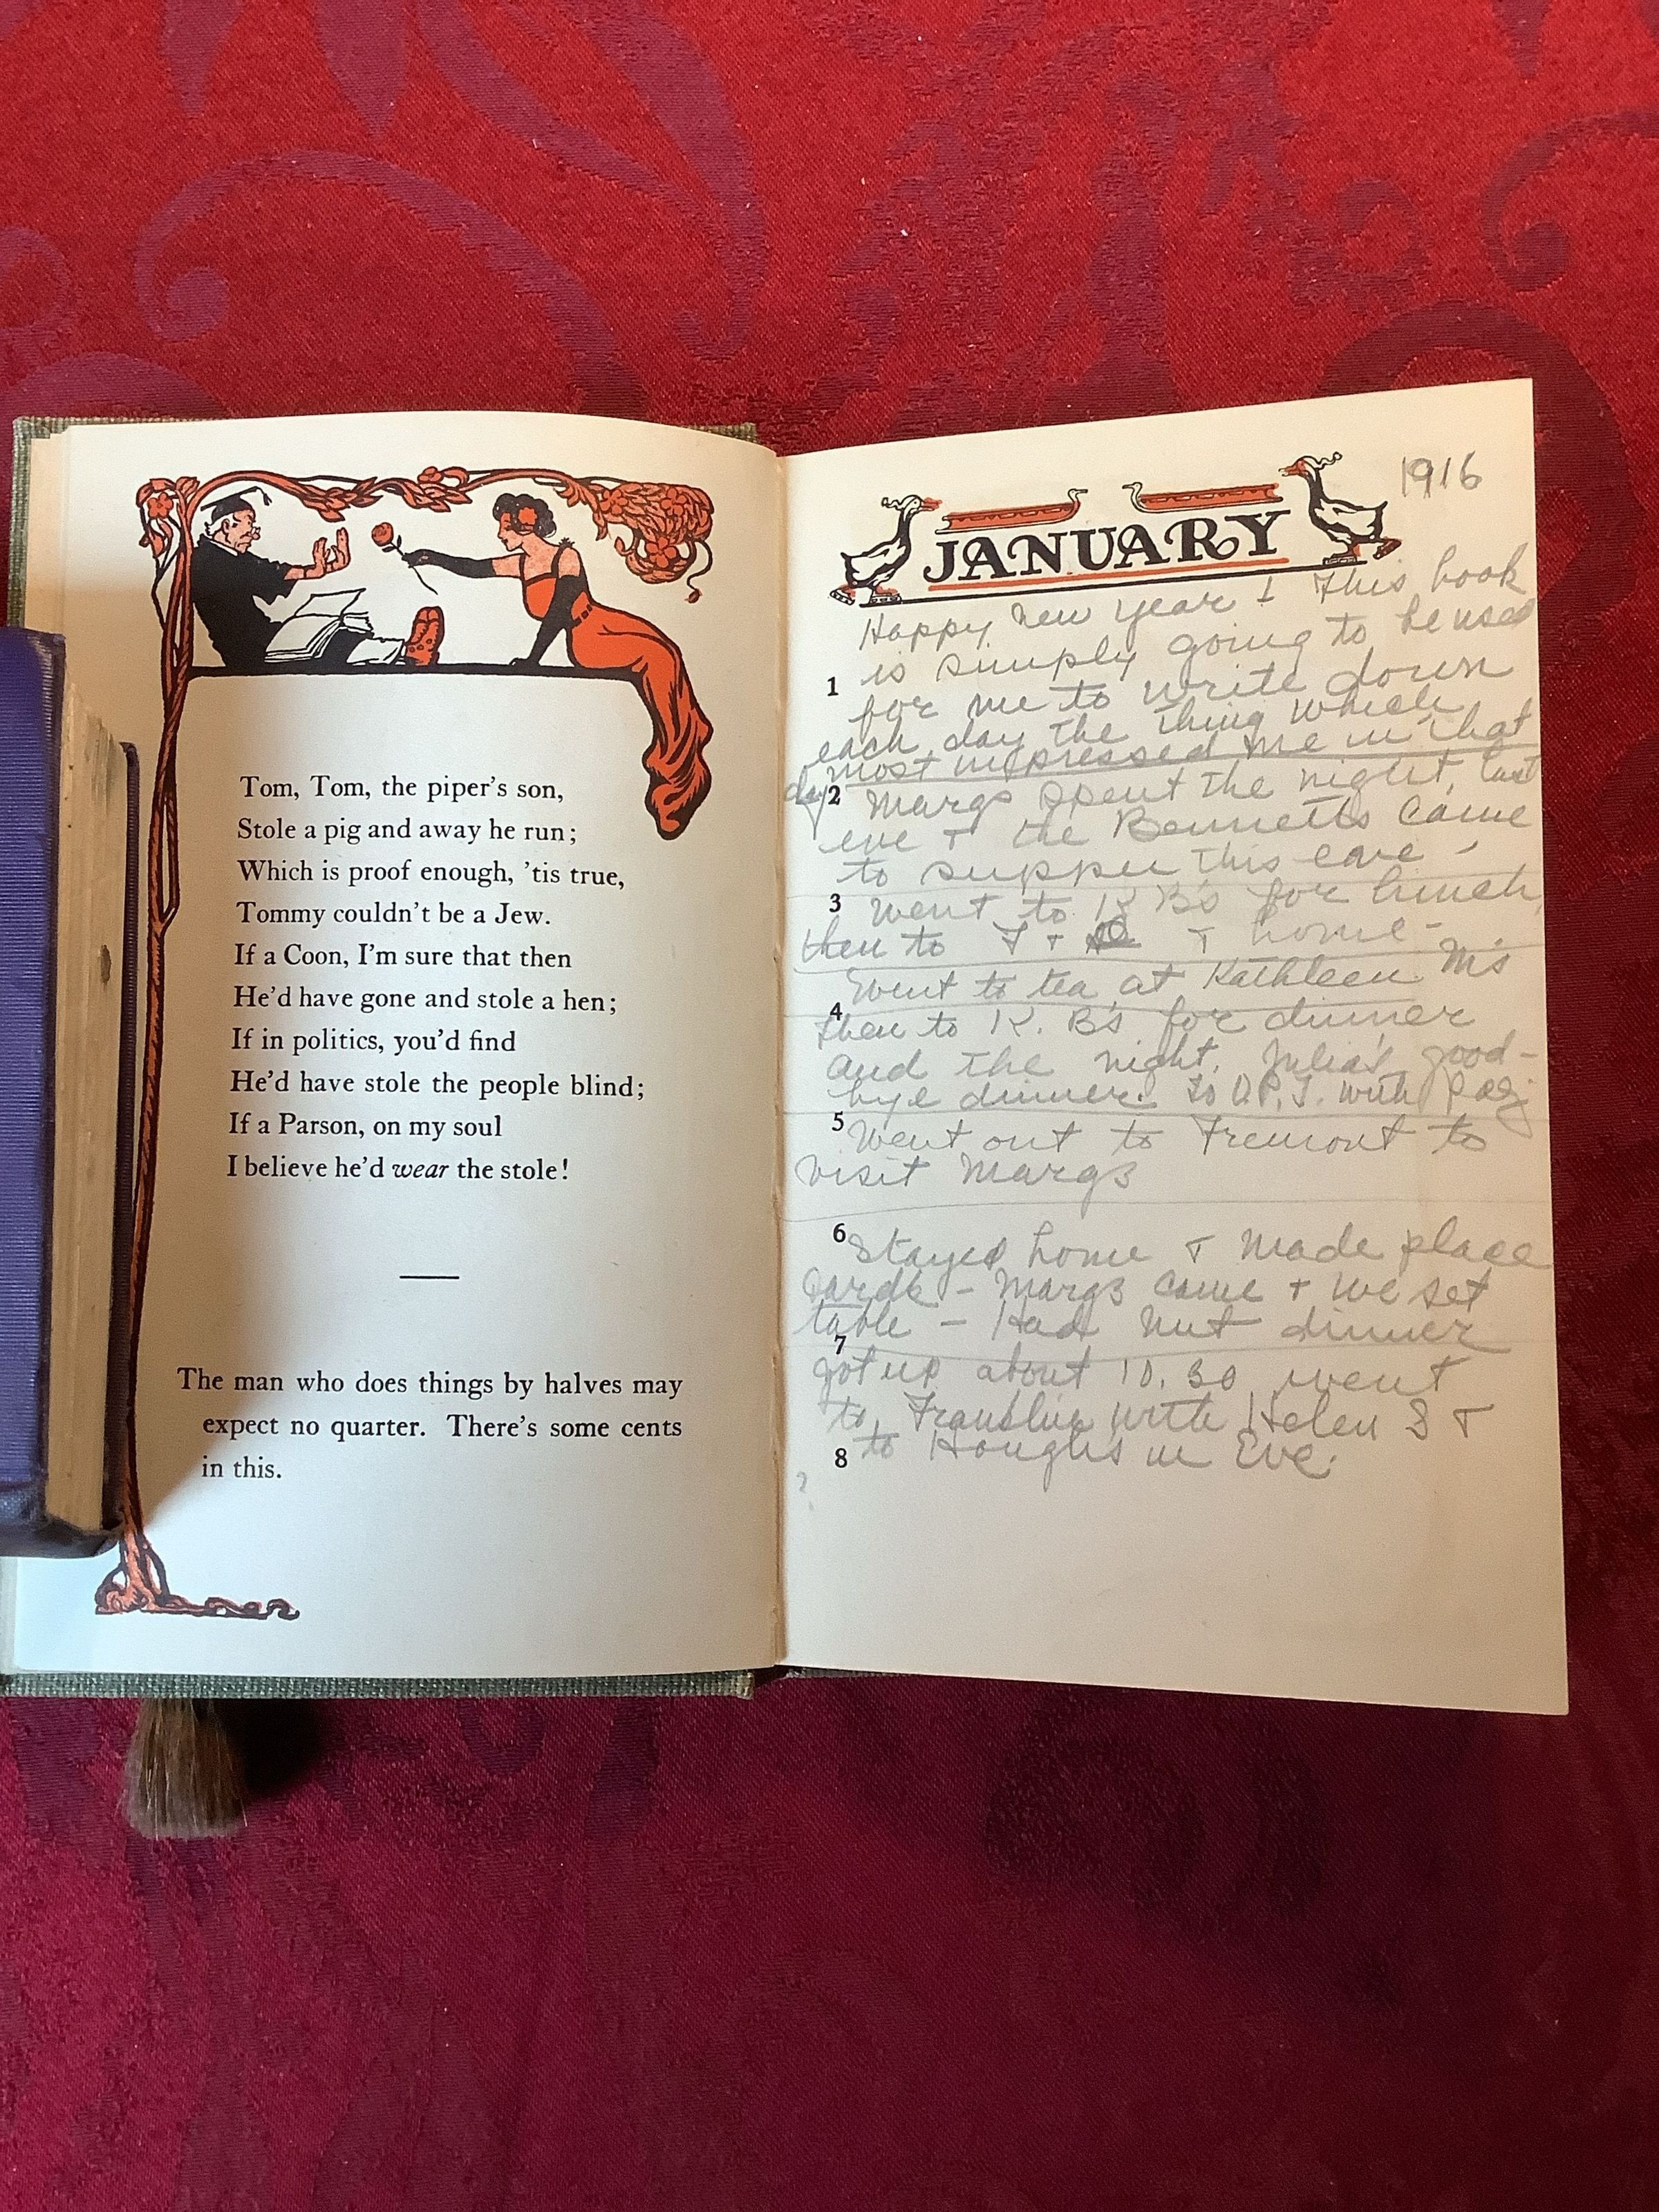 Tom, Tom, the piper's son,
Stole a pig and away he run;
Which is proof enough, 'tis true,
Tommy couldn't be a Jew.
If a Coon, I'm sure that then
He'd have gone and stole a hen;
If in politics, you'd find
He'd have stole the people blind;
If a Parson, on my soul
I believe he'd wear the stole!
The man who does things by halves may
expect no quarter. There's some cents
in this.
1916
JANUARY
Happy New Year! This book
1 is simply going to be used
for me to write down
each day the thing which
most impressed me in that
day
2 Margs spent the night, last
eve + the Bennetts came
to supper this eve -
3 Went to K B's for lunch,
then to F + + home -
Went to tea at Kathleen M's
4 then to K. B's for dinner
and the night. Julia's good-
bye dinner. to with
5 Went out to Tremont to
visit Margs
6 Stayed home + made place
cards - Margs came + we set
table - Had Nut dinner
7
got up about 10.30 went
to Franklin with Helen S +
8 to Houghs in Eve.
?